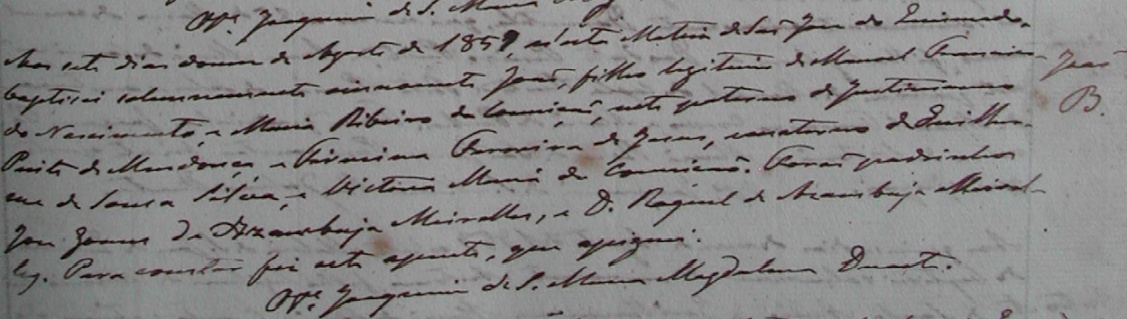 O Vigº Joaquim de S. Maria
Aos sete dias do mez de Agosto de 1859, n'esta Matriz de São Jose do
baptisei solemnemente innocente João, filho legitimo de Manoel
do Nascimento, e Maria Ribeiro da Conceição, neto paterno de Justiniano
de Mendonça, e Pereira de Jesus, e materno de Guilher-
me de Souza Silva, e Victoria Maria da Conceição. Forão padrinhos
Jose Gomes de Azambuja Meirelles, e D. Raquel de Azambuja Meirel-
les. Para constar fiz este assento, que assignei.
O Vigº Joaquim de S. Maria Magdalena Duarte.
João
B.